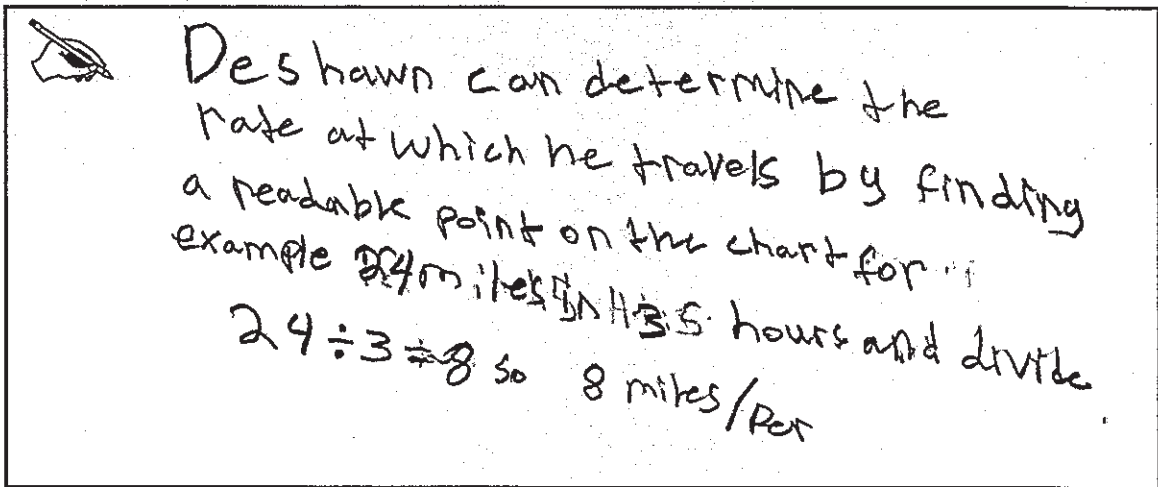 Deshawn can determine the
rate at which he travels by finding
a readable point on the chart for
example 24 miles in 3 hours and divide
24÷3=8 so 8 miles/per